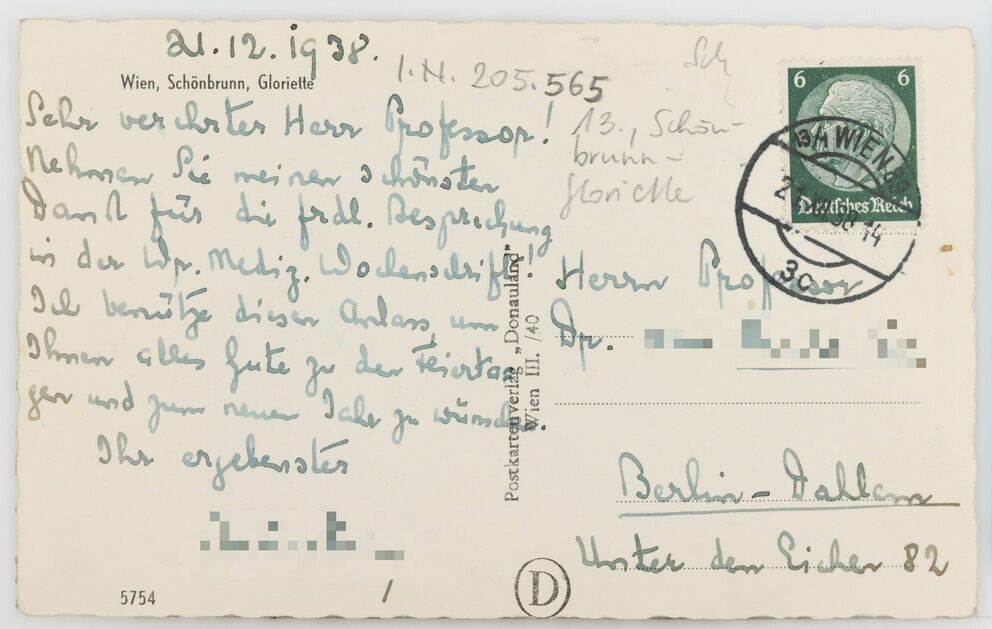 21.12.1938.
Wien, Schönbrunn, Gloriette
Sehr verehrter Herr Professor!
Nehmen Sie meinen schönsten
Dank für die frdl. Besprechung
in der Wr. Mediz. Wochenschrift!
Ich benütze diesen Anlass, um
Ihnen alles Gute zu den Feierta-
gen und zum neuen Jahr zu wünschen.
Ihr ergebenster
5754
I.N. 205.565
Sch
13., Schön-
brunn-
Gloriette
Postkartenverlag „Donauland"
Wien III. /40
D
6 6
Deutsches Reich
WIEN
30
Herrn Professor
Dr.
Berlin-Dahlem
Unter den Eichen 82